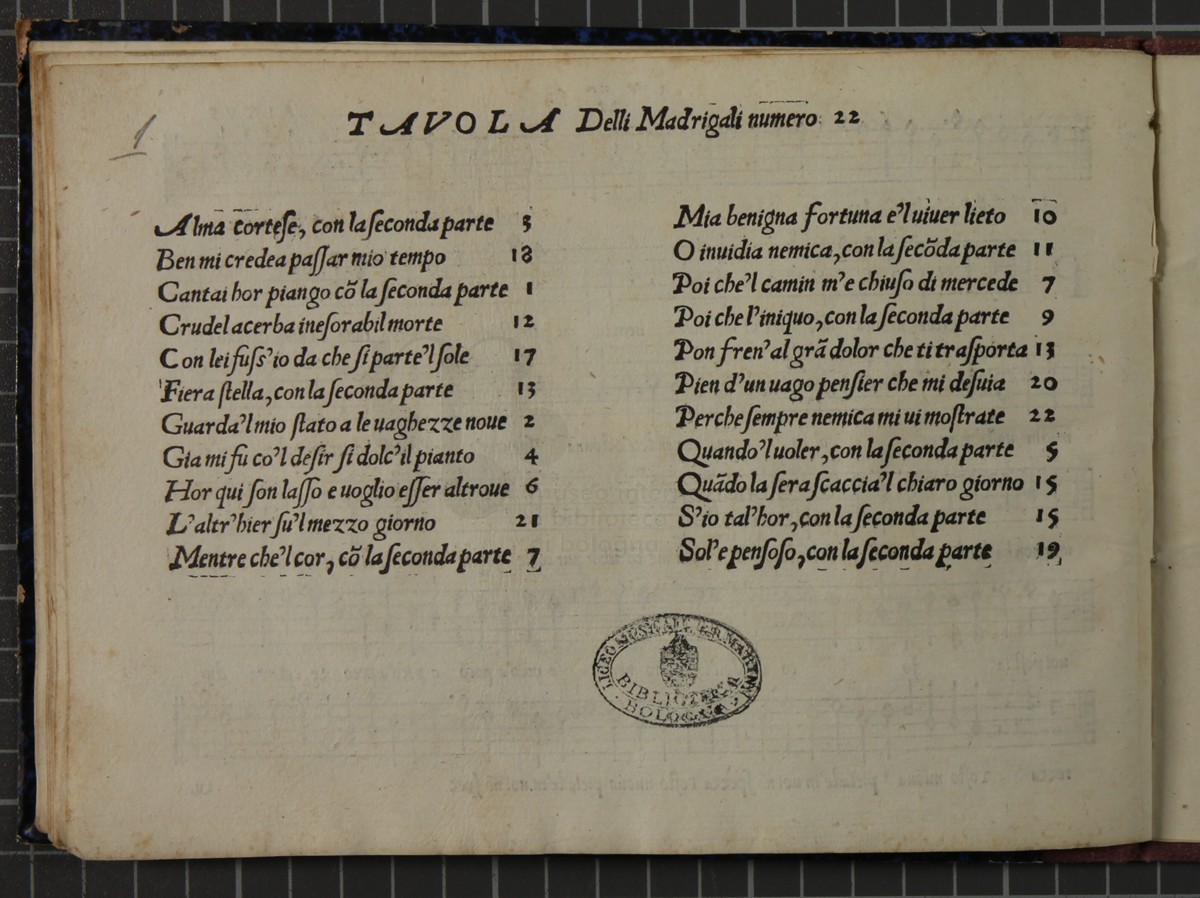 1
TAVOLA Delli Madrigali numero 22
Alma cortese, con la seconda parte 3
Ben mi credea passar mio tempo 18
Cantai hor piango cõ la seconda parte 1
Crudel acerba inesorabil morte 12
Con lei fuss'io da che si parte'l sole 17
Fiera stella, con la seconda parte 13
Guarda'l mio stato a le uaghezze noue 2
Gia mi fu co'l desir si dolc'il pianto 4
Hor qui son lasso e uoglio esser altroue 6
L'altr'hier su'l mezzo giorno 21
Mentre che'l cor, cõ la seconda parte 7
Mia benigna fortuna e'l uiuer lieto 10
O inuidia nemica, con la secõda parte 11
Poi che'l camin m'e chiuso di mercede 7
Poi che l'iniquo, con la seconda parte 9
Pon fren'al grã dolor che ti trasporta 13
Pien d'un uago pensier che mi desuia 20
Perche sempre nemica mi ui mostrate 22
Quando'l uoler, con la seconda parte 5
Quãdo la sera scaccia'l chiaro giorno 15
S'io tal'hor, con la seconda parte 15
Sol'e pensoso, con la seconda parte 19
LICEO MUSICALE G.B. MARTINI
BIBLIOTECA
BOLOGNA